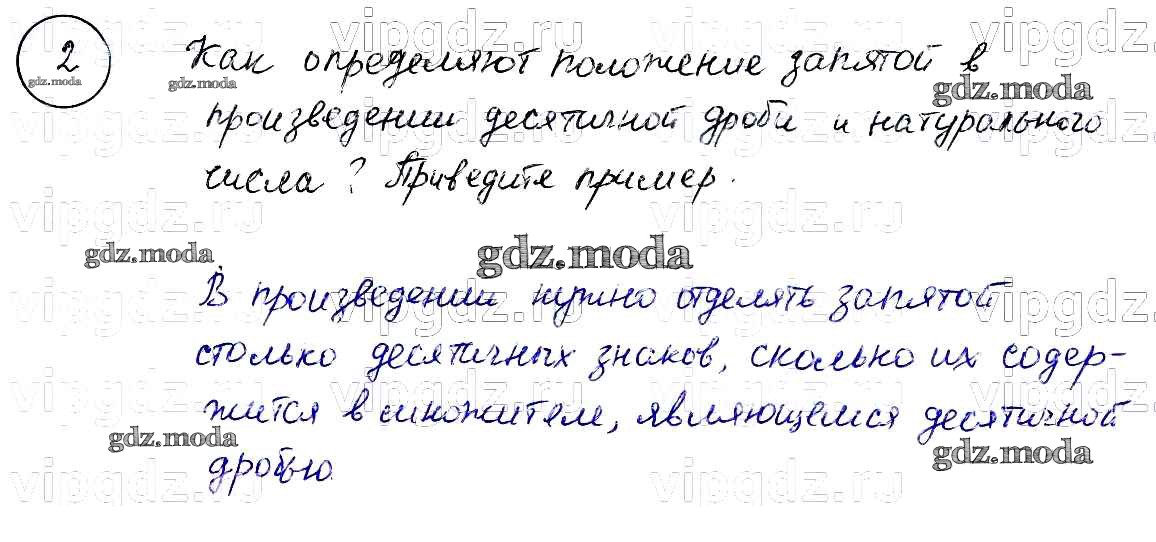 2
Как определяют положение запятой в
произведении десятичной дроби и натурального
числа? Приведите пример.
В произведении нужно отделять запятой
столько десятичных знаков, сколько их содер-
жится в множителе, являющемся десятичной
дробью
vipgdz.ru
gdz.moda